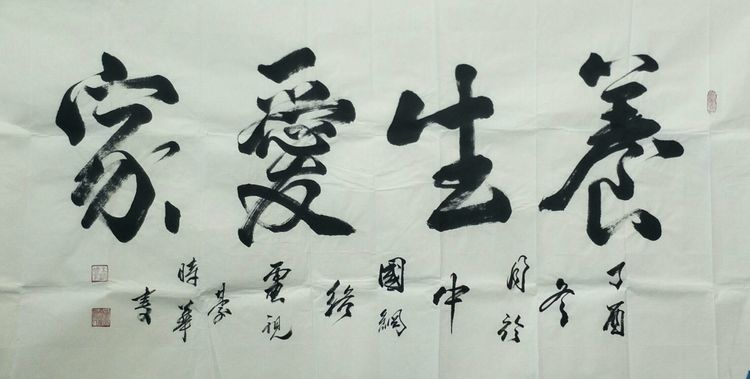 養生愛家
丁酉冬月於中國網絡電視臺時華書